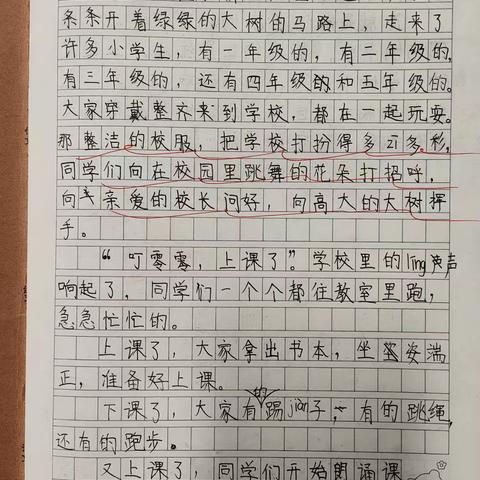 条条开着绿绿的大树的马路上，走来了
许多小学生，有一年级的，有二年级的，
有三年级的，还有四年级的和五年级的。
大家穿戴整齐来到学校，都在一起玩耍。
那整洁的校服，把学校打扮得多zi多彩，
同学们向在校园里跳舞的花朵打招呼，
向亲爱的校长问好，向高大的大树挥
手。
“叮零零，上课了”。学校里的líng声
响起了，同学们一个个都往教室里跑，
急急忙忙的。
上课了，大家拿出书本，坐姿端
正，准备好上课。
下课了，大家有的踢jiàn子，有的跳绳，
还有的跑步。
又上课了，同学们开始朗诵课